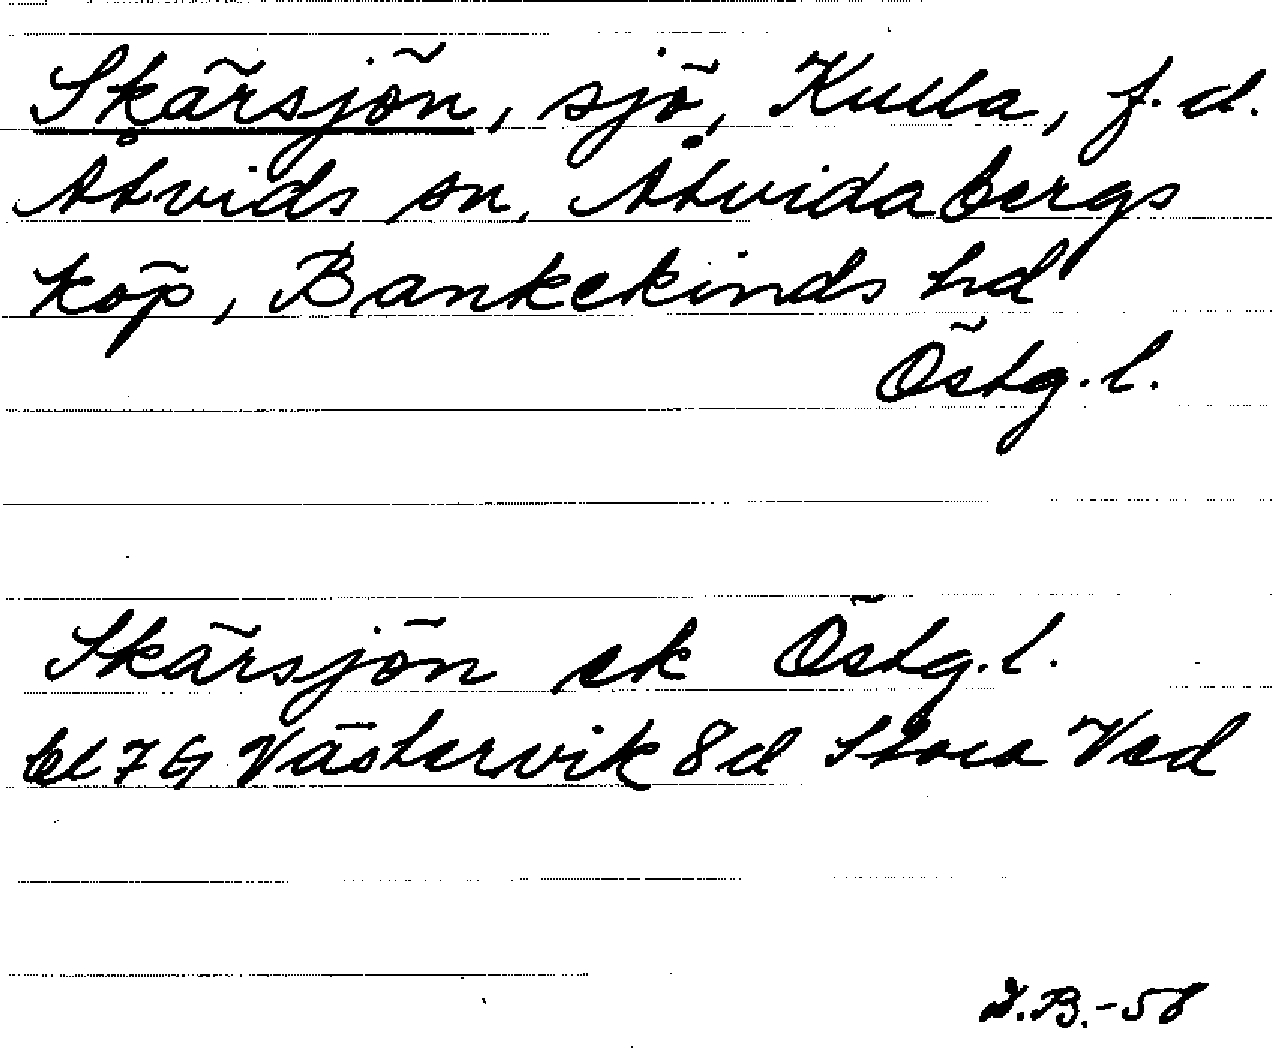 Skärsjön, sjö, Kulla, f.d.
Åtvids sn, Åtvidabergs
köp, Bankekinds hd
Östg.l.
Skärsjön ek Östg.l.
bl 7 G Västervik 8d Stora Ved
J.B.-58